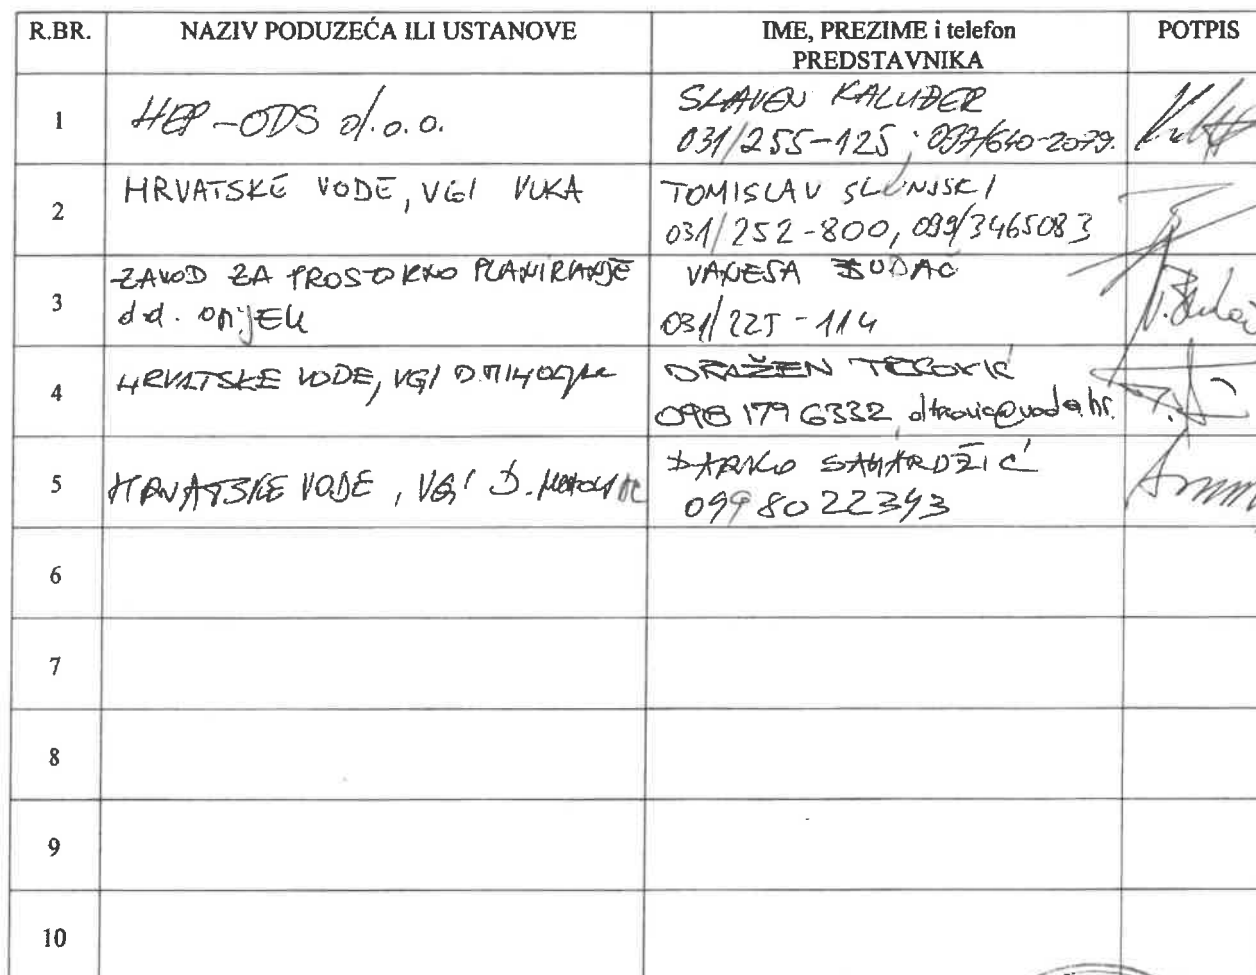 R.BR. NAZIV PODUZEĆA ILI USTANOVE IME, PREZIME i telefon PREDSTAVNIKA POTPIS
1 HEP-ODS d.o.o. SLAVEN KALUĐER
031/255-125; 097/640-2079.
2 HRVATSKE VODE, VGI VUKA TOMISLAV SLUNJSKI
031/252-800, 099/3465083
3 ZAVOD ZA PROSTORNO PLANIRANJE VANESA BUDAČ
d.d. OSIJEK 031/225-114
4 HRVATSKE VODE, VGI DRAŽEN
098 179 6332
5 HRVATSKE VODE, VGI DARKO
099 8022393
6
7
8
9
10